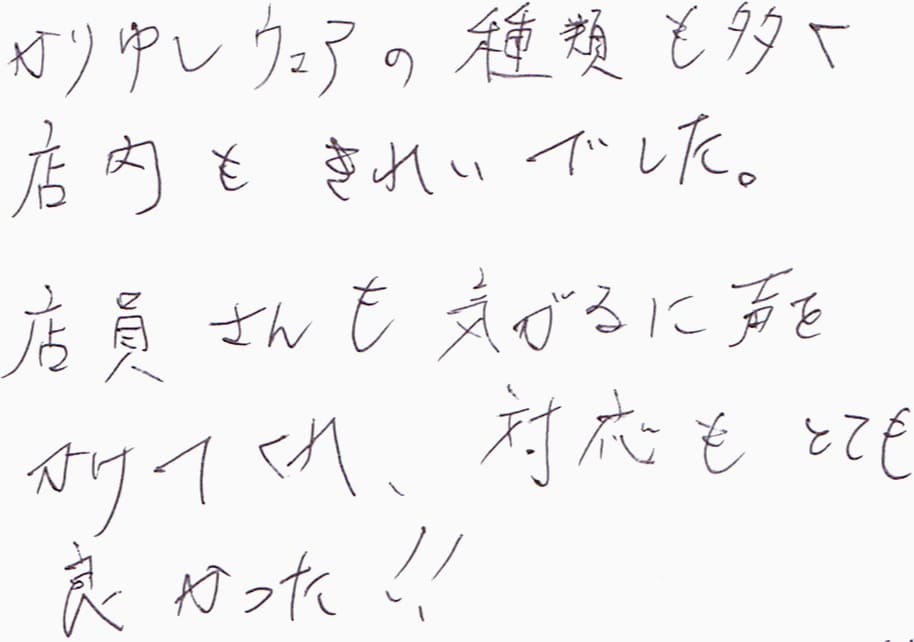 かりゆしウェアの種類も多く
店内もきれいでした。
店員さんも気がるに声を
かけてくれ、対応もとても
良かった!!